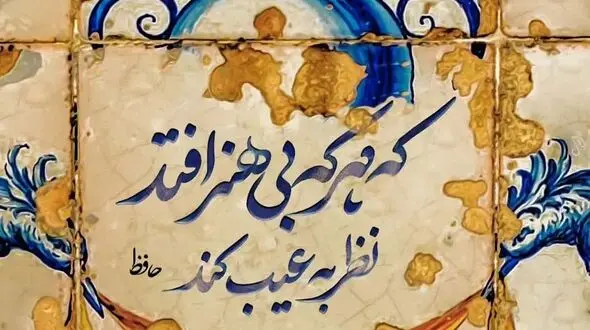 که هر که بی هنر افتد
نظر به عیب کند
حافظ